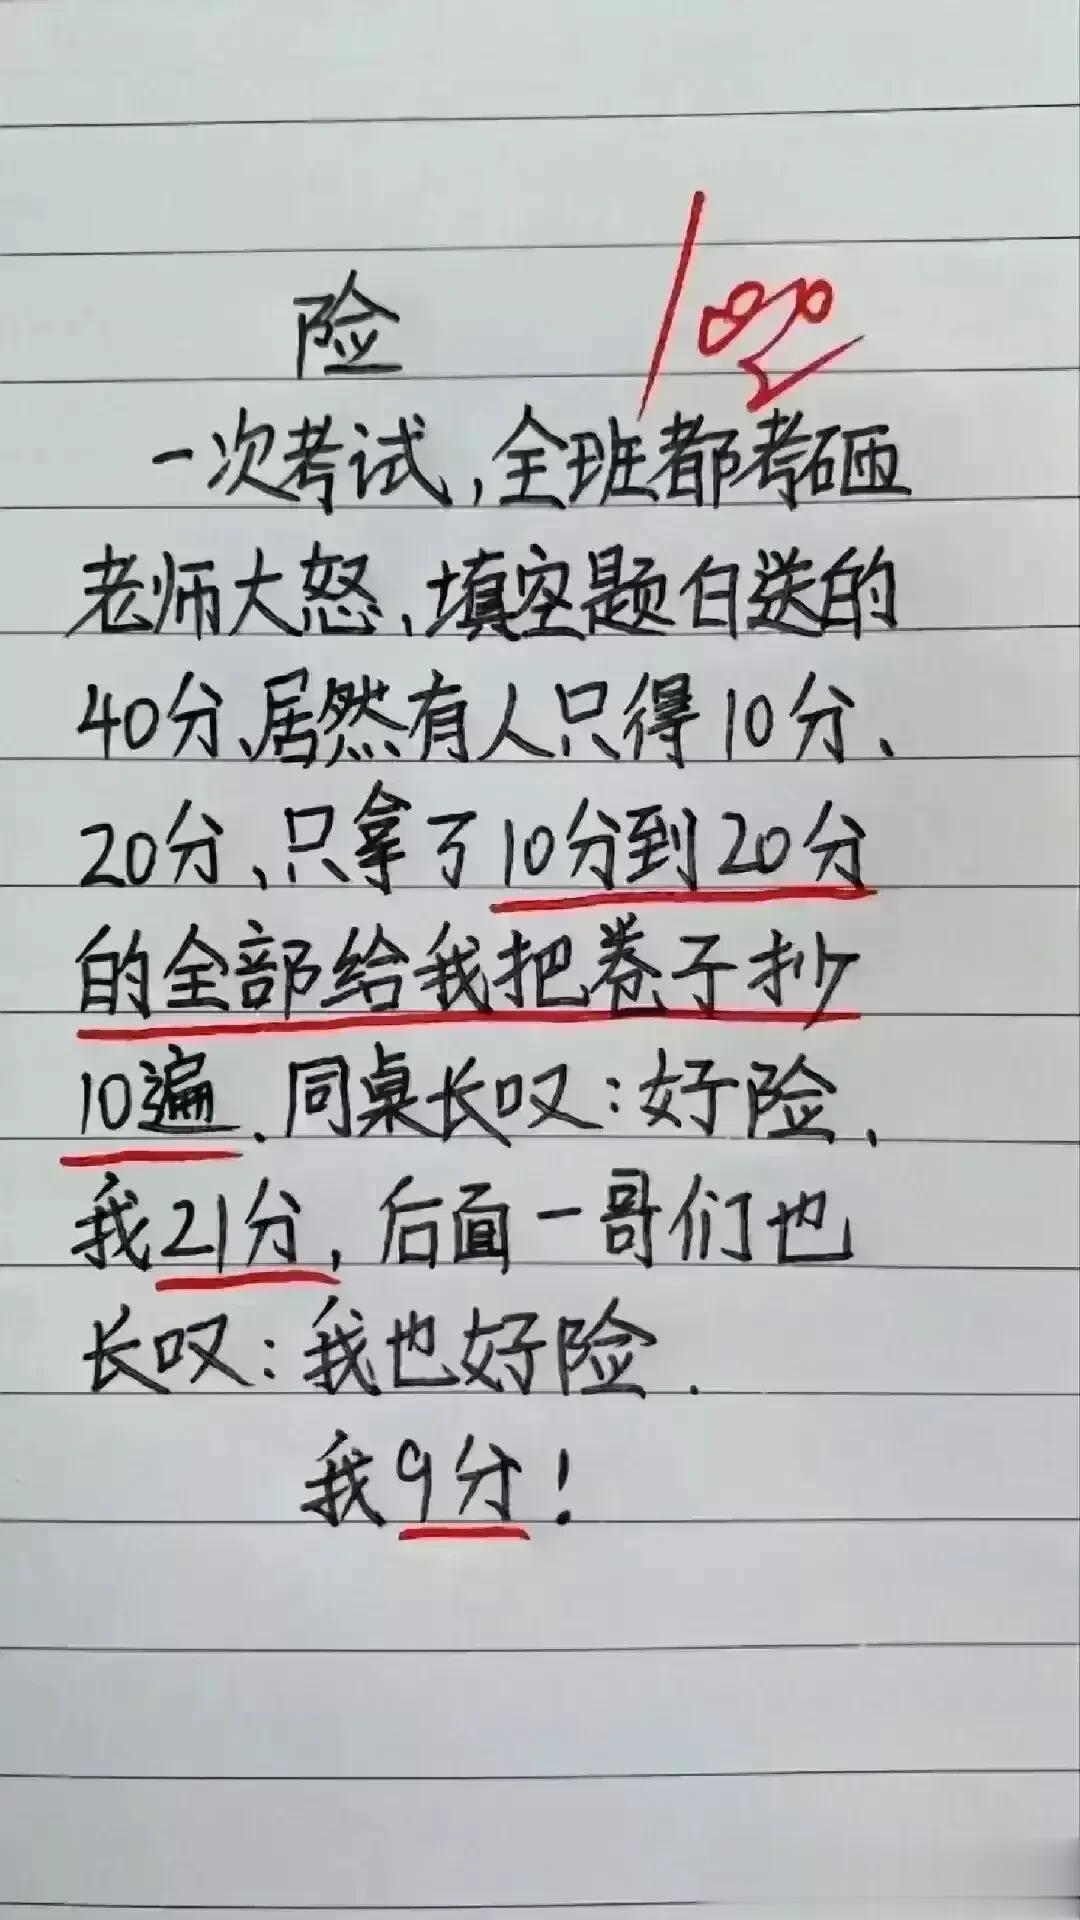 险 100
一次考试,全班都考砸
老师大怒、填空题白送的
40分、居然有人只得10分、
20分、只拿了10分到20分
的全部给我把卷子抄
10遍、同桌长叹:好险、
我21分,后面一哥们也
长叹:我也好险.
我9分!